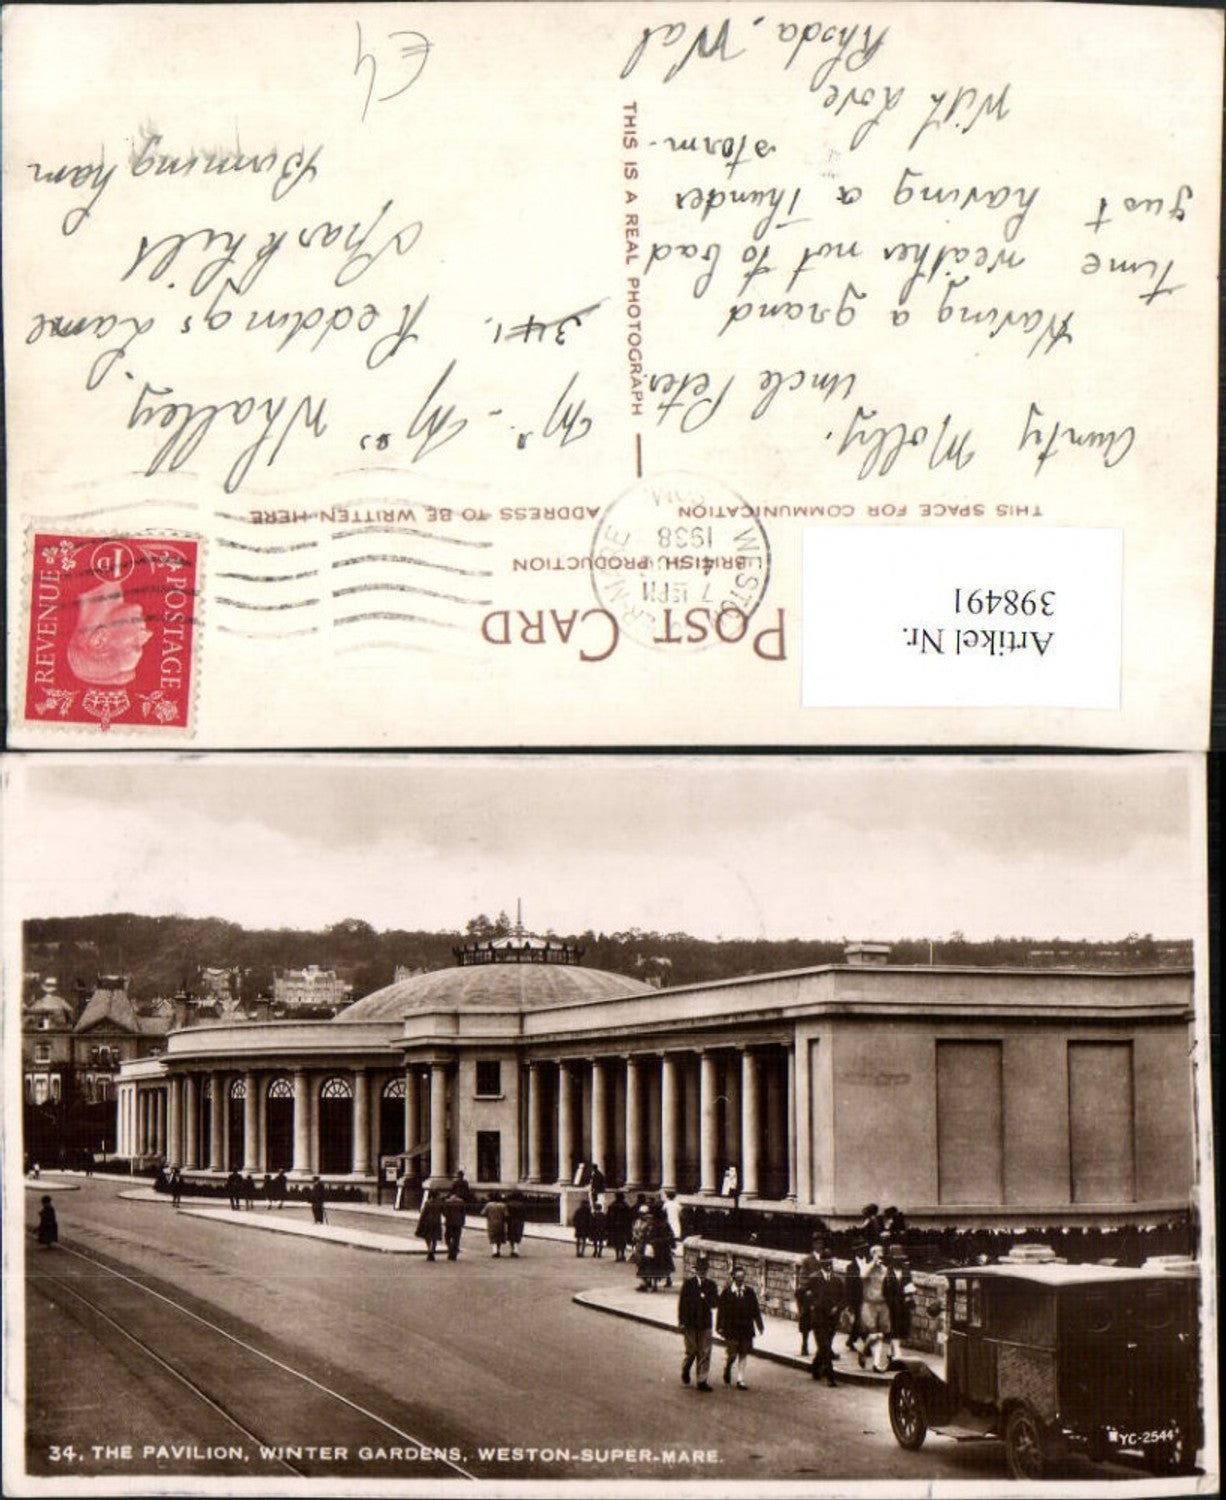 POST CARD
BRITISH PRODUCTION
THIS SPACE FOR COMMUNICATION
ADDRESS TO BE WRITTEN HERE
THIS IS A REAL PHOTOGRAPH
WESTON
7 15 PM
4
1938
SOM.
POSTAGE
REVENUE
1D
Artikel Nr.
398491
Aunty Molly.
Uncle Peter.
Having a grand
time weather not to bad
Just having a thunder
storm.
With Love,
Rhoda, Wal
Mr. Mrs. Whalley.
341. Reddings Lane
Sparkhill
Birmingham
£4
34, THE PAVILION, WINTER GARDENS, WESTON-SUPER-MARE.
YC-2544